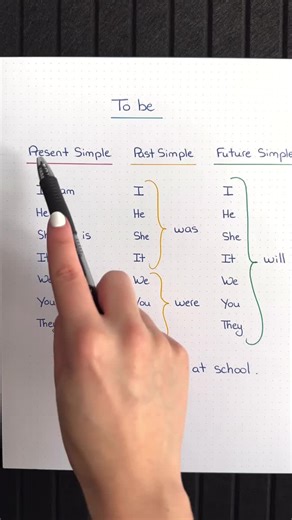 To be
Present Simple Past Simple Future Simple
I am I I
He He He
is She was She
It It It will
We We We
You You were You
They They
at school.